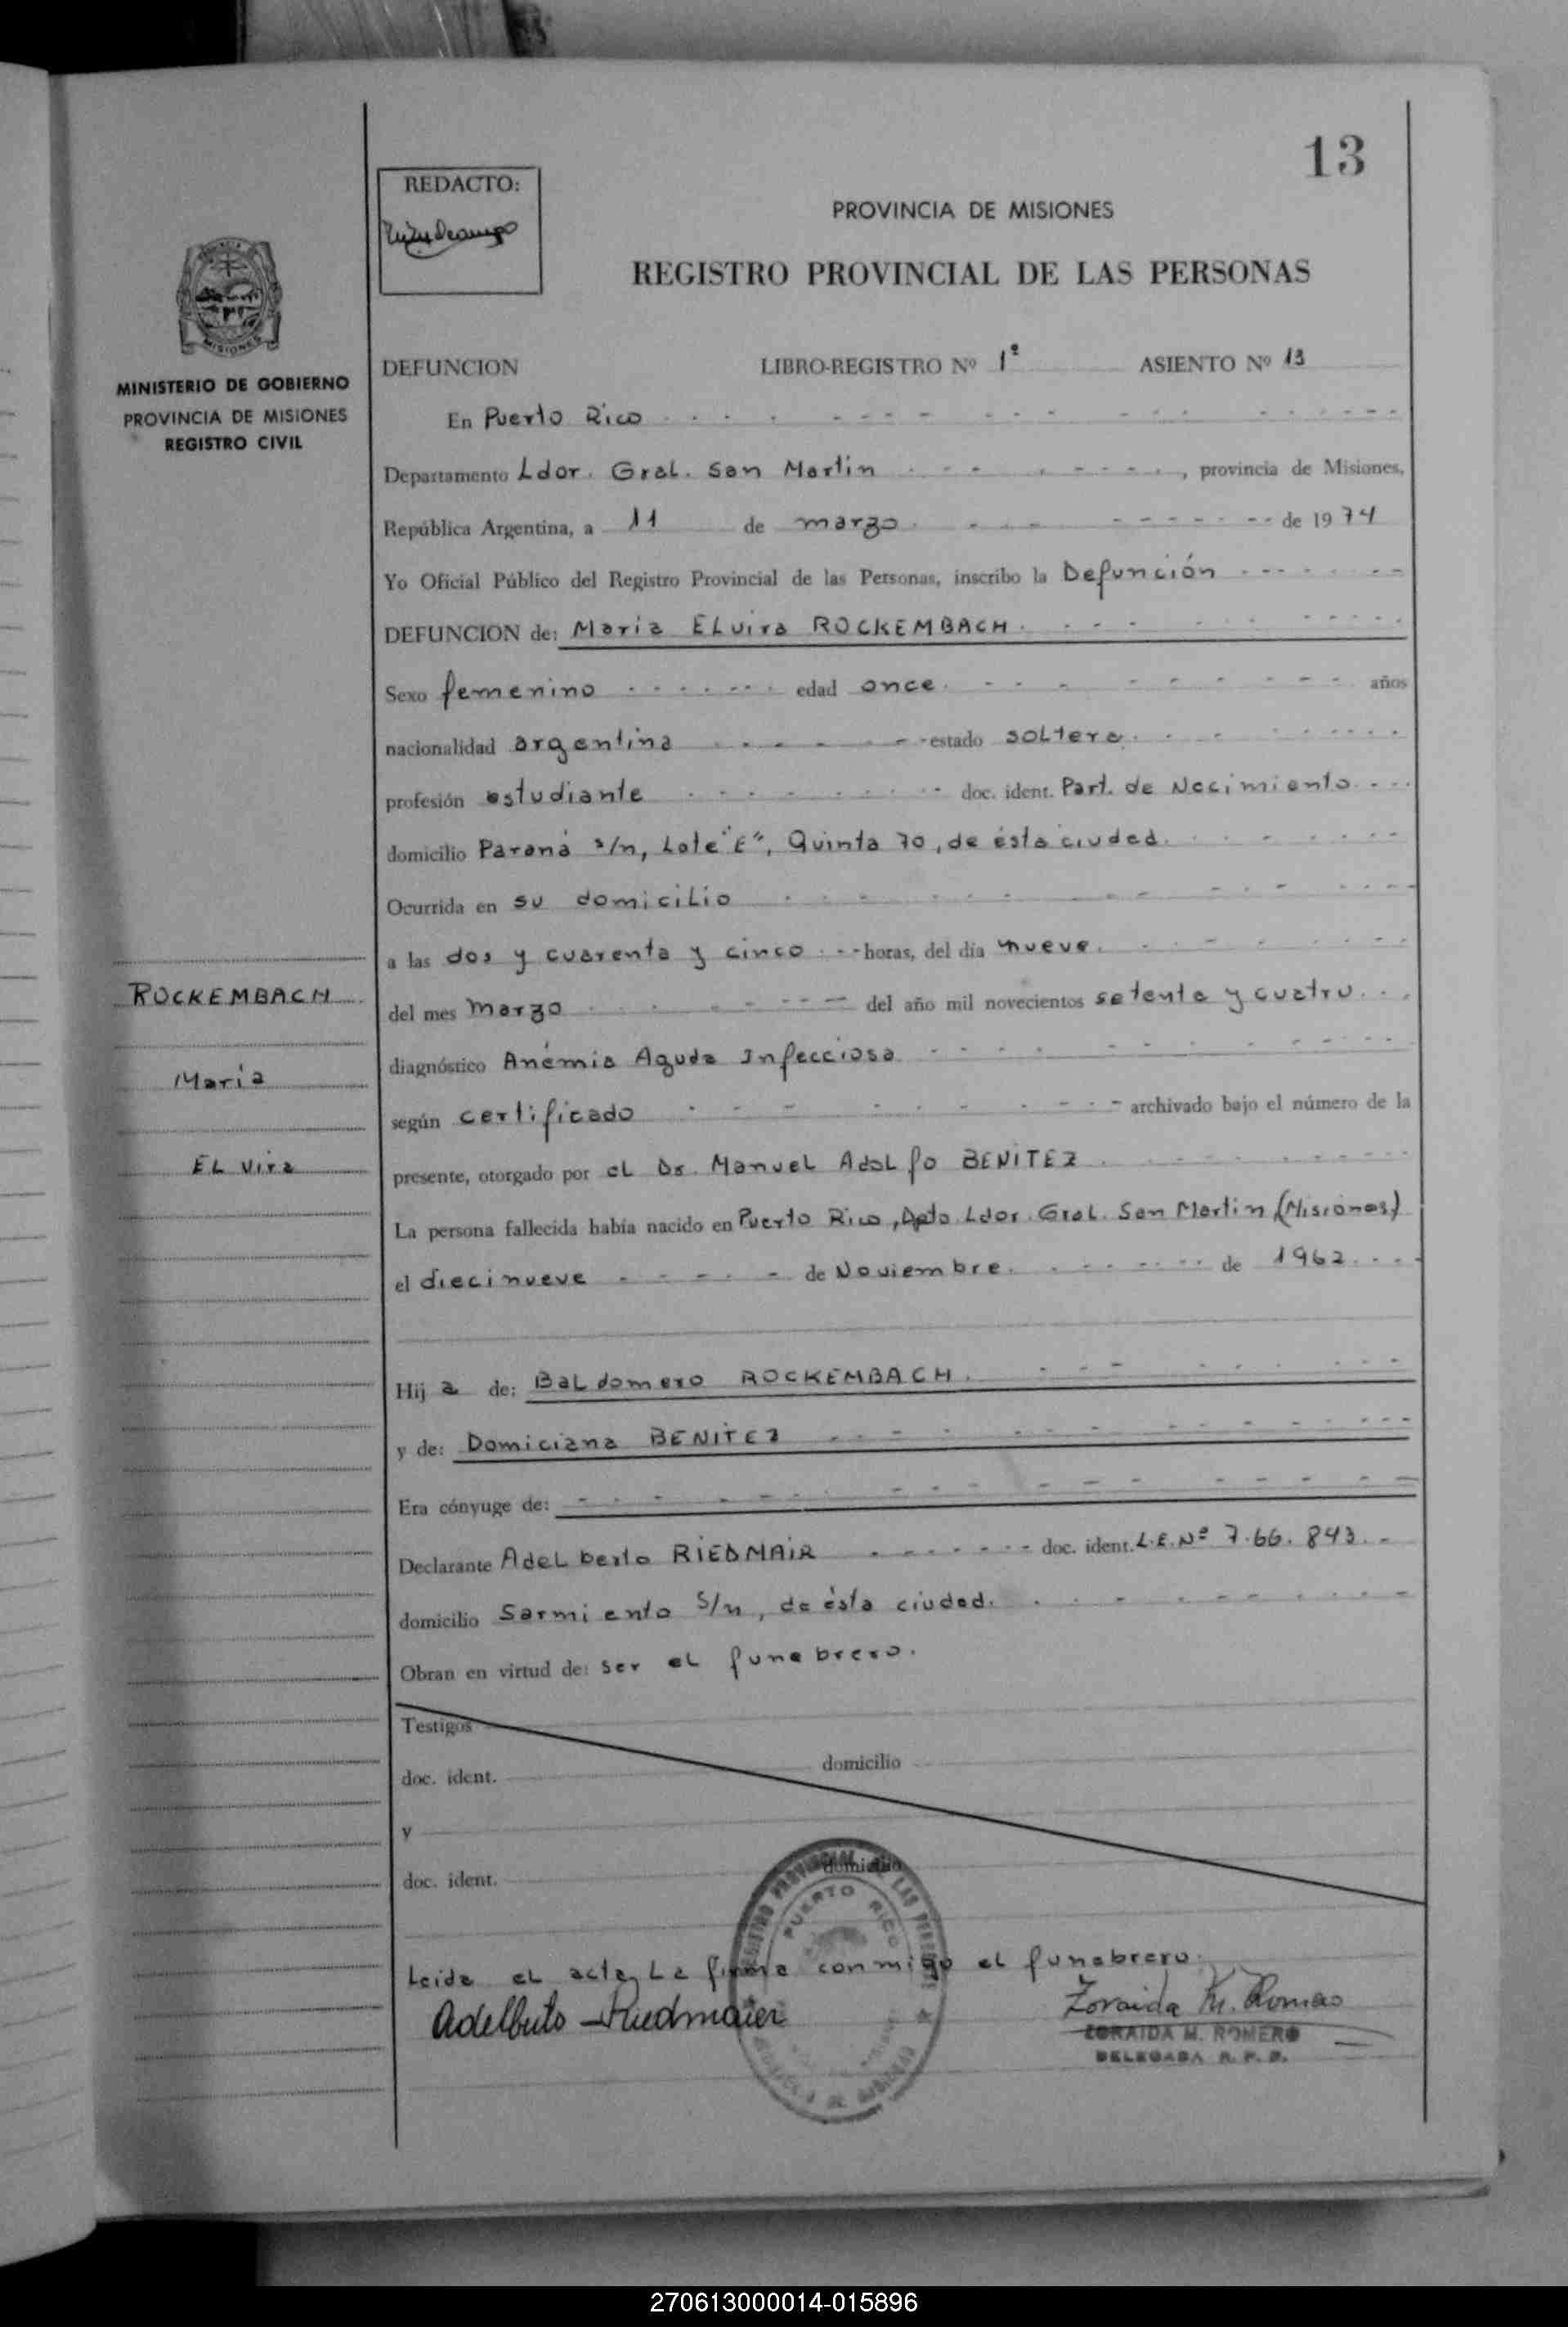 13
REDACTO:
PROVINCIA DE MISIONES
REGISTRO PROVINCIAL DE LAS PERSONAS
MISIONES
MINISTERIO DE GOBIERNO
PROVINCIA DE MISIONES
REGISTRO CIVIL
DEFUNCION LIBRO-REGISTRO Nº 1º ASIENTO Nº 13
En Puerto Rico
Departamento Ldor. Gral. San Martin, provincia de Misiones,
República Argentina, a 11 de marzo de 1974
Yo Oficial Público del Registro Provincial de las Personas, inscribo la Defunción
DEFUNCION de: Maria ELvira ROCKEMBACH.
Sexo femenino edad once. años
nacionalidad argentina estado soltera.
profesión estudiante doc. ident. Part. de Nacimiento
domicilio Paraná s/n, Lote "E", Quinta 70, de ésta ciudad.
Ocurrida en su domicilio
a las dos y cuarenta y cinco horas, del día nueve.
del mes Marzo del año mil novecientos setenta y cuatro.
diagnóstico Anémia Aguda Infecciosa
según certificado archivado bajo el número de la
presente, otorgado por el Dr. Manuel Adolfo BENITEZ
La persona fallecida había nacido en Puerto Rico, Dpto. Ldor. Gral. San Martin (Misiones)
el diecinueve de Noviembre. de 1962
ROCKEMBACH
Maria
ELvira
Hija de: Baldomero ROCKEMBACH.
y de: Domiciana BENITEZ
Era cónyuge de:
Declarante Adelberto RIEDMAIR doc. ident. L.E. Nº 7.66.843.
domicilio Sarmiento s/n, de ésta ciudad.
Obran en virtud de: ser el funebrero.
Testigos
doc. ident. domicilio
y
doc. ident. domicilio
REGISTRO PROVINCIAL DE LAS PERSONAS
PUERTO RICO
Leida el acta, la firma conmigo el funebrero.
Adelberto Riedmaier
Zoraida M. Romero
ZORAIDA M. ROMERO
DELEGADA R. P. P.
270613000014-015896